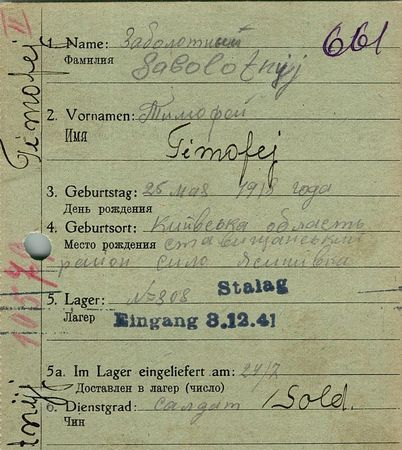 II
1. Name: Заболотный
Фамилия
Sabolotnyj
661
2. Vornamen: Тимофей
Имя
Timofej
Timofej
3. Geburtstag: 26 мая 1918 года
День рождения
4. Geburtsort: Київська область
Место рождения Ставищанський
район село
5. Lager: №308
Лагер
Stalag
Eingang 8.12.41
5a. Im Lager eingeliefert am: 24/7
Доставлен в лагер (число)
6. Dienstgrad: Салдат / Sold.
Чин